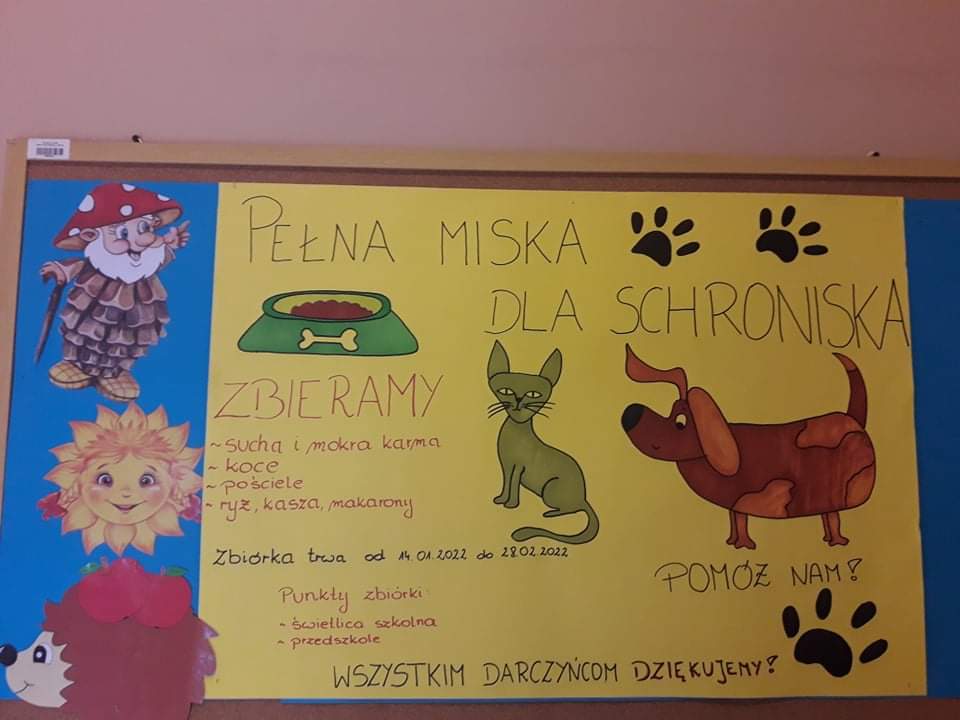 PEŁNA MISKA
DLA SCHRONISKA
ZBIERAMY
~ suchą i mokrą karmą
~ koce
~ pościele
~ ryż, kasza, makarony
Zbiórka trwa od 14.01.2022 do 28.02.2022
Punkty zbiórki:
~ świetlica szkolna
~ przedszkole
POMÓŻ NAM!
WSZYSTKIM DARCZYŃCOM DZIĘKUJEMY!